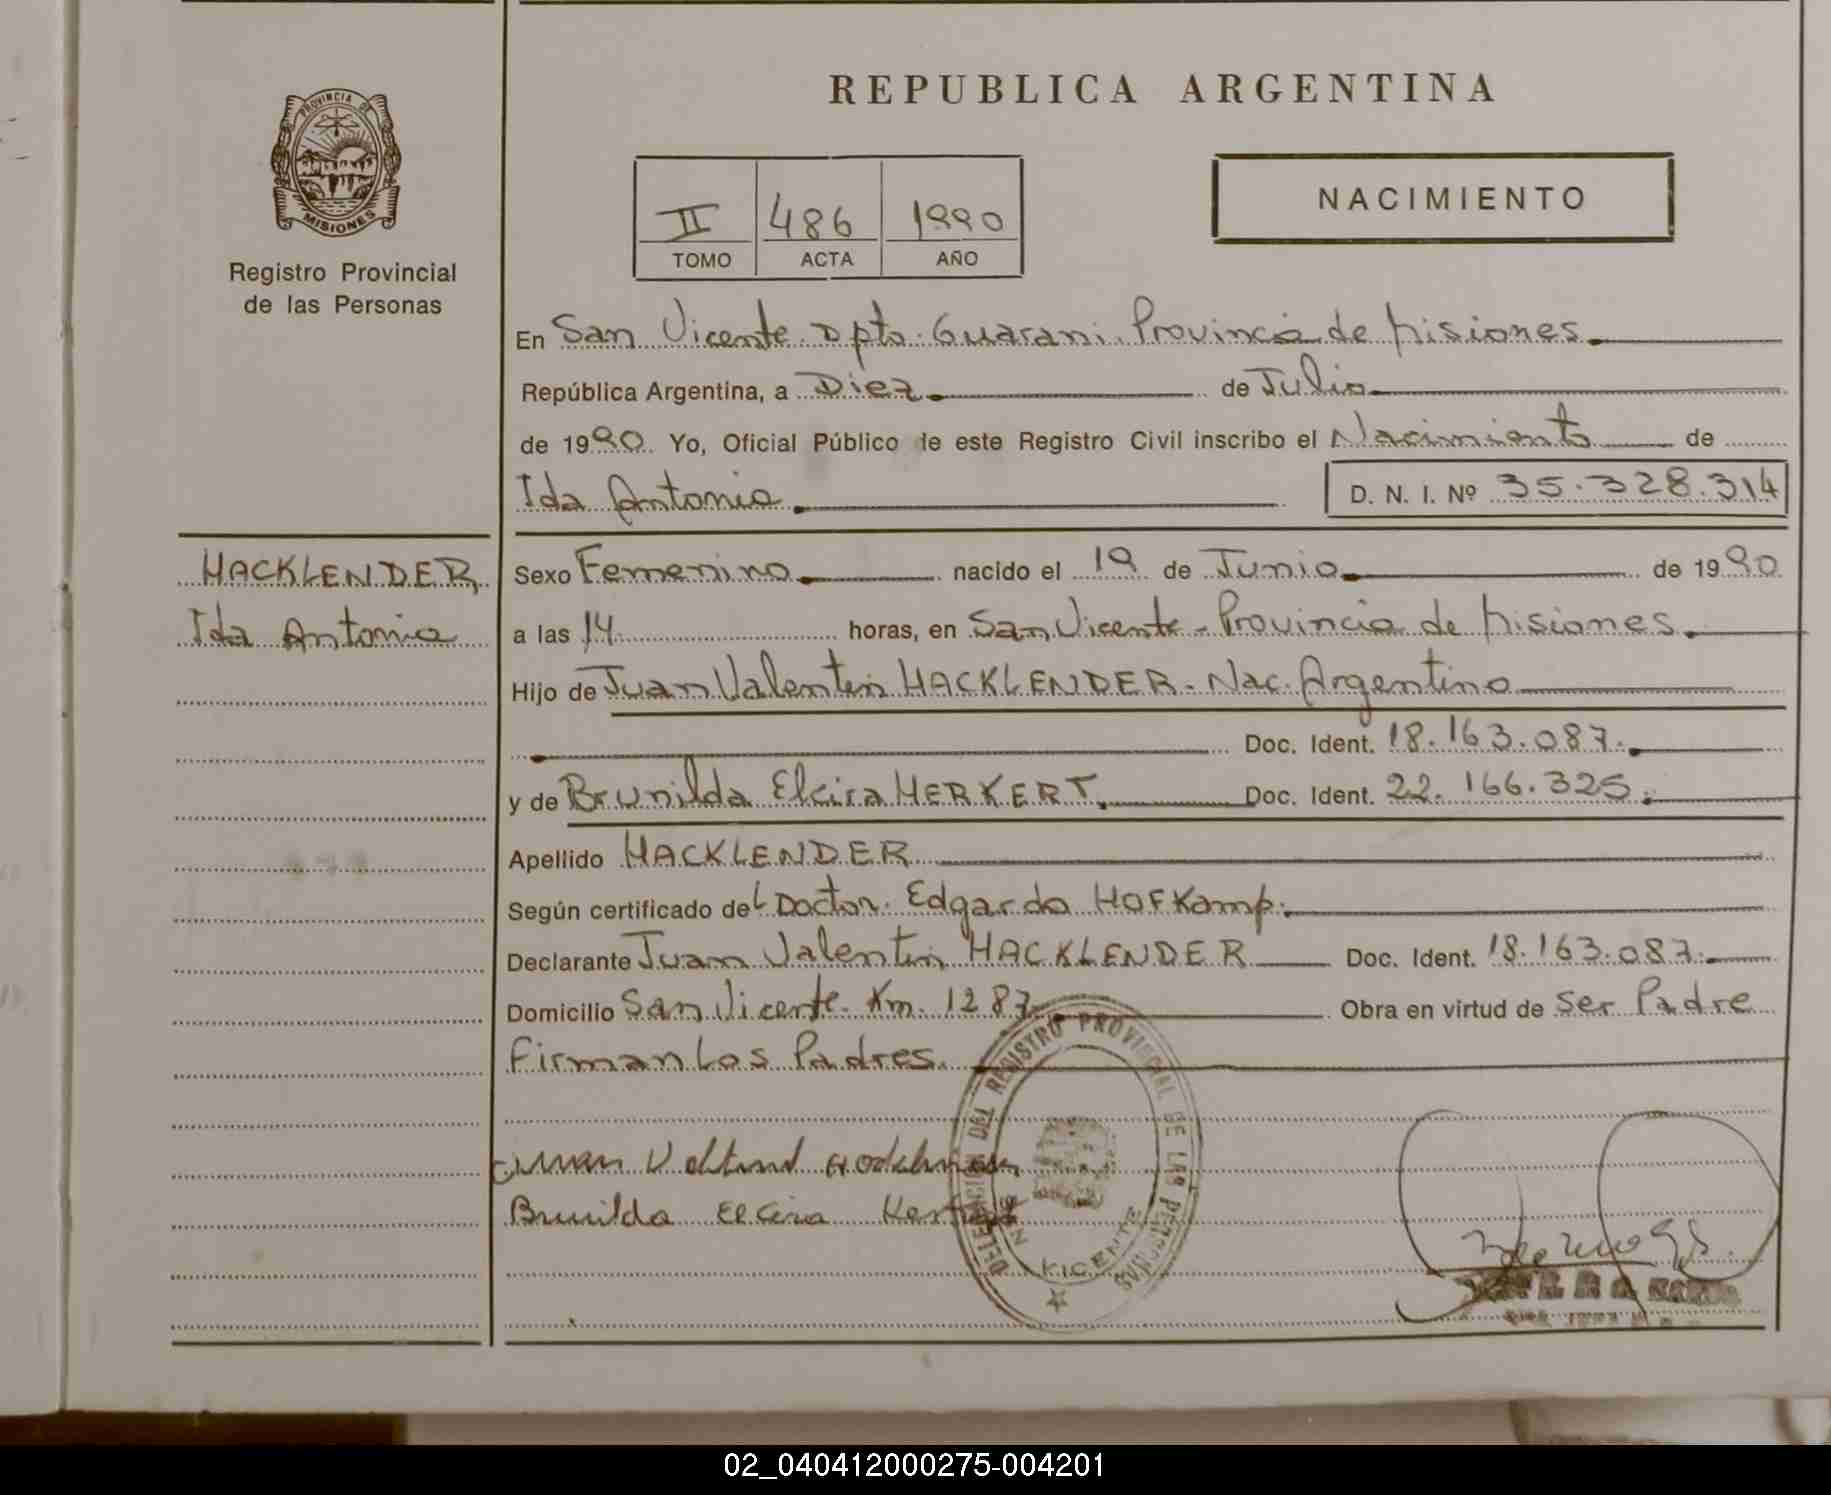 REPUBLICA ARGENTINA
PROVINCIA DE
MISIONES
Registro Provincial
de las Personas
II 486 1990
TOMO ACTA AÑO
NACIMIENTO
En San Vicente Dpto. Guarani. Provincia de Misiones
República Argentina, a Diez de Julio
de 1990. Yo, Oficial Público de este Registro Civil inscribo el Nacimiento de
Ida Antonia
D. N. I. Nº 35.328.314
HACKLENDER,
Ida Antonia
Sexo Femenino nacido el 19 de Junio de 1990
a las 14 horas, en San Vicente - Provincia de Misiones.
Hijo de Juan Valentin HACKLENDER. Nac. Argentino
Doc. Ident. 18.163.087.
y de Brunilda Elcira HERKERT. Doc. Ident. 22.166.325.
Apellido HACKLENDER
Según certificado del Doctor. Edgardo HOFKamp.
Declarante Juan Valentin HACKLENDER Doc. Ident. 18.163.087.
Domicilio San Vicente. Km. 1287. Obra en virtud de Ser Padre
Firman Los Padres.
Brunilda Elcira
DELEGACION DEL REGISTRO PROVINCIAL DE LAS PERSONAS
VICENTE
02_040412000275-004201